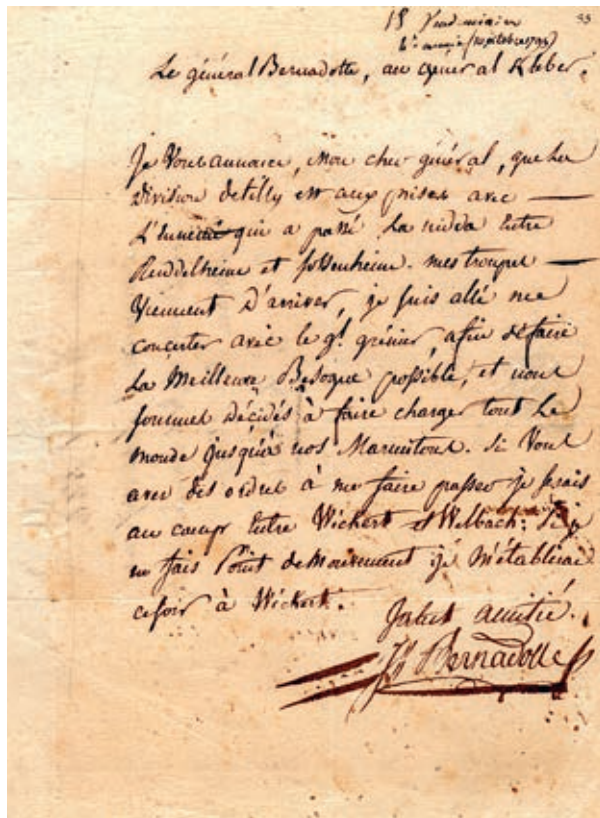 18 Vendémiaire 93
4e année (10 octobre 1795)
Le général Bernadotte, au général Kleber.
Je Vous annonce, Mon cher général, que la
division de tilly est aux prises avec —
L'ennemi qui a passé la nidda entre
et mes troupes —
Viennent D'arriver, je suis allé me
concerter avec le gl. grénier, afin de faire
La Meilleure Besogne possible, et nous
sommes Décidés à faire charger tout Le
monde jusqu'à nos Marmitons. Si Vous
avez des ordres à me faire passer je serais
au camp entre Wickert et Welbach; Si je
ne fais Point de Mouvement je M'établirai
ce soir à Wickert.
Salut amitié.
Bernadotte